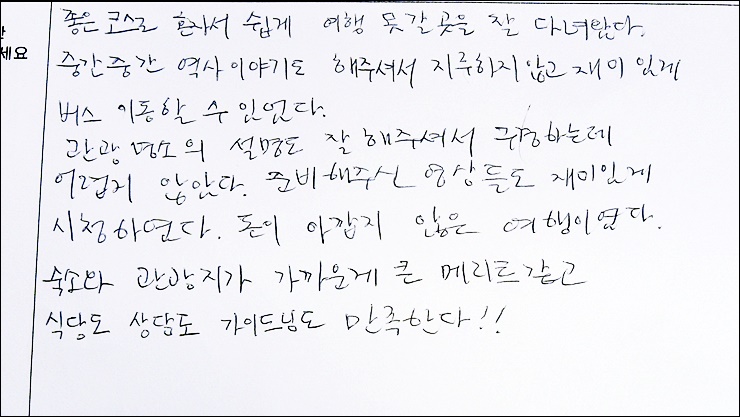 좋은 코스로 혼자서 쉽게 여행 못갈 곳을 잘 다녀왔다.
세요
중간중간 역사이야기도 해주셔서 지루하지 않고 재미있게
버스 이동할 수 있었다.
관광명소의 설명도 잘 해주셔서 구경하는데
어렵지 않았다. 준비해주신 영상들도 재미있게
시청하였다. 돈이 아깝지 않은 여행이였다.
숙소와 관광지가 가까운게 큰 메리트같고
식당도 상담도 가이드님도 만족한다!!